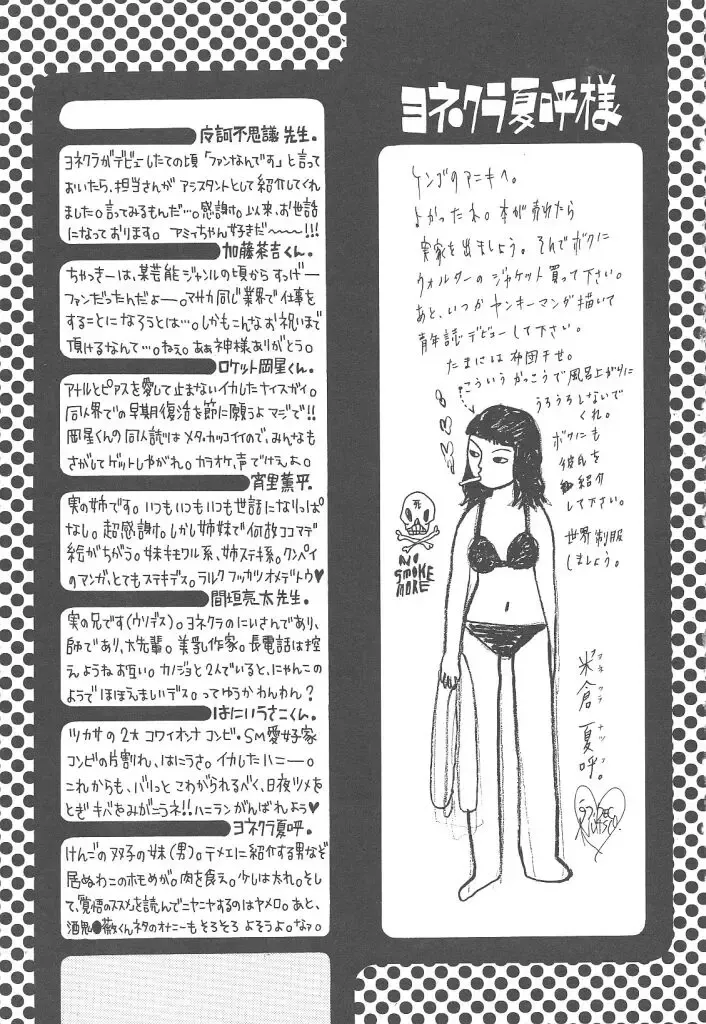 ヨネクラ夏呼様
ケンゴのアニキへ。
よかったね。本が売れたら
実家を出ましょう。そんでボクに
ウォルターのジャケット買って下さい。
あと、いつかヤンキーマンガ描いて
青年誌デビューして下さい。
たまには布団干せ。
こういうかっこうで風呂上がりに
うろうろしないで
くれ。
ボクにも
彼氏を
紹介
して下さい。
世界制服
しましょう。
死
NO
SMOKE
MORE
米倉夏呼。
ヨネクラナツコ
皮訶不思議先生。
ヨネクラがデビューしたての頃「ファンなんです」と言って
おいたら、担当さんがアシスタントとして紹介してくれ
ました。言ってみるもんだ…。感謝。以来、お世話
になっております。アミィちゃん好きだ〜〜〜!!!
加藤茶吉くん。
ちゃっきーは、某芸能ジャンルの頃からすっげー
ファンだったんだよー。マサカ同じ業界で仕事を
することになろうとは…。しかもこんなお祝いまで
頂けるなんて…。ねぇ。あぁ神様ありがとう。
ロケット岡星くん。
アナルとピアスを愛して止まないイカしたナイスガイ。
同人界での早期復活を節に願うよマジで!!
岡星くんの同人誌はメタ・カッコイイので、みんなも
さがしてゲットしやがれ。カラオケ、声でけぇよ。
宵里薫平。
実の姉です。いつもいつもいつも世話になりっぱ
なし。超感謝。しかし姉妹で何故ココマデ
絵がちがう。妹キモワル系、姉ステキ系。クンペイ
のマンガ、とてもステキデス。ラルクフッカツオメデトウ♥
間垣亮太先生。
実の兄です(ウソデス)。ヨネクラのにいさんであり、
師であり、大先輩。美乳作家。長電話は控
えようねお互い。カノジョと2人でいると、にゃんこの
ようでほほえましいデス。ってゆうかわんわん?
はにぃうさこくん。
ツカサの2大コワイオンナコンビ。SM愛好家
コンビの片割れ、はにうさ。イカしたハニー。
これからも、バリっとこわがられるべく、日夜ツメを
とぎキバをみがこうネ!!ハニランがんばれよう♥
ヨネクラ夏呼。
けんごの双子の妹(男)。テメエに紹介する男なぞ
居ぬわこのホモめが。肉を食え。少しは太れ。そし
て、覚悟のススメを読んでニヤニヤするのはヤメロ。あと、
酒鬼●薇くんネタのオナニーもそろそろよそうよ。なっ。